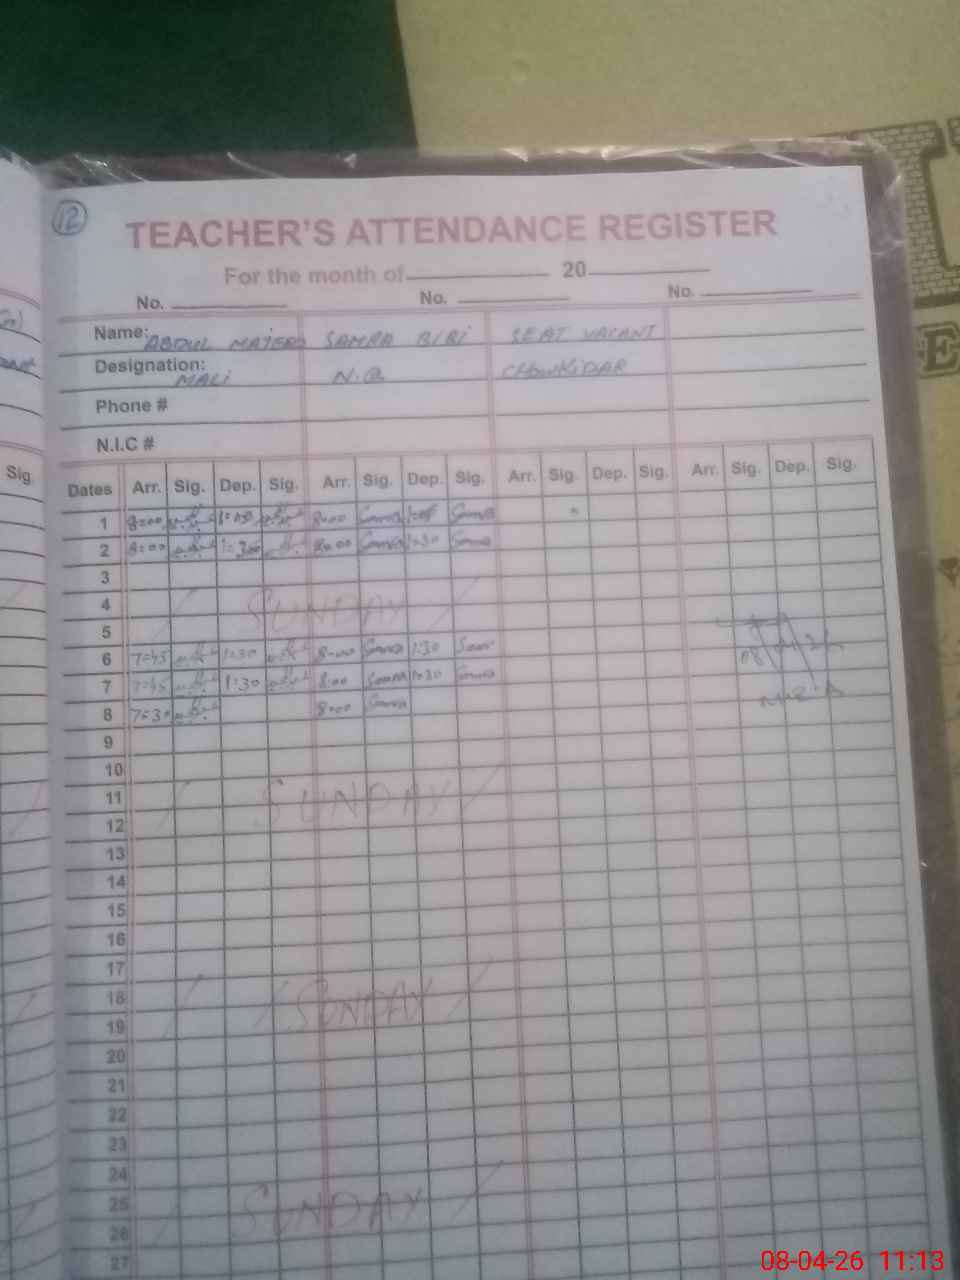 12
TEACHER'S ATTENDANCE REGISTER
For the month of 20
No. No. No.
Name: ABDUL MAJEED SAMRA BIBI SEAT VACANT
Designation: MALI N.Q CHOWKIDAR
Phone #
N.I.C #
Sig.
Dates Arr. Sig. Dep. Sig. Arr. Sig. Dep. Sig. Arr. Sig. Dep. Sig. Arr. Sig. Dep. Sig.
1 8=00 8=00
2 8=00 1:30 8=00 1:30
3
4 SUNDAY
5
6 7=45 1:30 8=00 1:30
7 7=45 1:30 8:00 1:30
8 7=30 8=00
9
10
11 SUNDAY
12
13
14
15
16
17
18 SUNDAY
19
20
21
22
23
24
25 SUNDAY
26
27
08-04-26 11:13